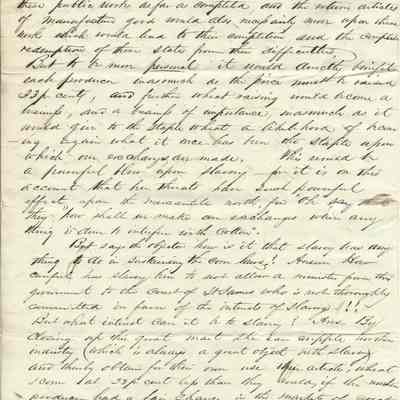 these public works as far as completed and the various articles
of manufacture good would also
work which would lead to their completion and the complete
redemption of those States from their difficulties
But to be more personal it would directly benefit
each producer inasmuch as the price must be raised
33 p cent, and further wheat raising would become a
business, and a branch of importance, inasmuch as it
would give to the Staple Wheat a likelihood of becom
-ing again what it once has been the Staple upon
which our exchanges are made. This would be
a powerful blow upon slavery — for it is on this
account that her threats have such powerful
effect upon the mercantile north, for Oh say
they "how shall we make our exchanges when any
thing is done to interfere with Cotton".
But says the objector how is it that slavery has any
thing to do in sustaining the Corn laws? Answer How
comes has slavery him to not allow a minister from this
government to the Court of St James who is not thoroughly
committed in favor of the interests of Slavery!!!
But what interest can it be to slavery? Ans. By
closing up this great mart she can cripple northern
industry (which is always a great object with slavery)
and thirdly obtain for their own use articles wheat
&corn 1at 33 p cent less than they would, if the northern
producer had a fair chance in the markets of